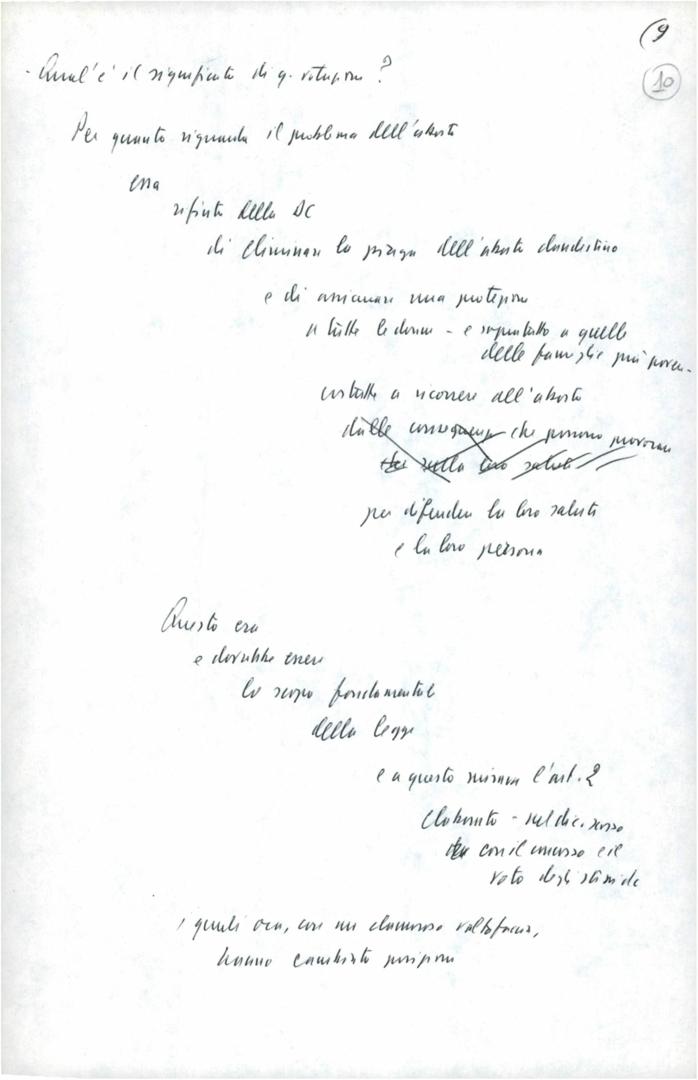 (9
10
- Qual'è il significato di q. votazione?
Per quanto riguarda il problema dell'aborto
essa
rifiuto della DC
di eliminare la piaga dell'aborto clandestino
e di assicurare una protezione
a tutte le donne - e soprattutto a quelle
delle famiglie più povere -
costrette a ricorrere all'aborto
dalle conseguenze che possono provocare
sulla loro salute
per difendere la loro salute
e la loro persona
Questo era
e dovrebbe essere
lo scopo fondamentale
della legge
e a questo mirava l'art. 2
elaborato - nel dic. scorso
con il concorso e il
voto degli stessi dc
i quali ora, con un clamoroso voltafaccia,
hanno cambiato posizione